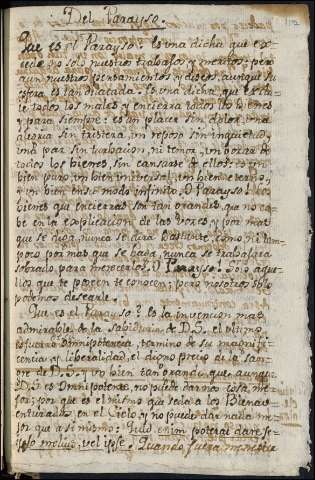 Del Parayso.
Que es el Parayso? Es vna dicha que ex-
cede no solo nuestros trabajos y meritos; pero
aun nuestros pensamientos y deseos, aunque su
esfera es tan dilatada. Es vna dicha, que escluie
todos los males, y encierra todos los bienes
y para siempre: es un placer sin dolor, vna
alegria sin tristeza, un reposo sin inquietud,
vna paz sin turbacion, ni temor, vn gozar de
todos los bienes, sin cansarse de ellos: es vn
bien puro, vn bien universal, vn bien eterno,
y vn bien en su modo infinito. O Parayso! los
bienes que encierras son tan grandes, que no ca-
be en la explicacion de las voces; y por mas
que se diga, nunca se dirà bastante, como ni tam-
poco por mas que se haga, nunca se trabajarà
sobrado para merecerlos. O Parayso! Solo aque-
llos que te poseen te conocen; pero nosotros solo
podemos desearte.
Que es el Parayso? Es la invencion mas
admirable de la Sabiduria de D.S, el ultimo
esfuerzo Omnipotencia, termino de su magnifi-
cencia y liberalidad, el digno precio de la San-
gre de D.S. y vn bien tan grande que aunque
D.S es Omnipotente, no puede darnos cosa me-
jor; por que es el mismo que se da a los Bienav
enturados en el Cielo, y no puede dar nada me-
jor que a si mismo: Quid enim poterat dare se-
ipso melius, vel ipse? Quando fuera menester